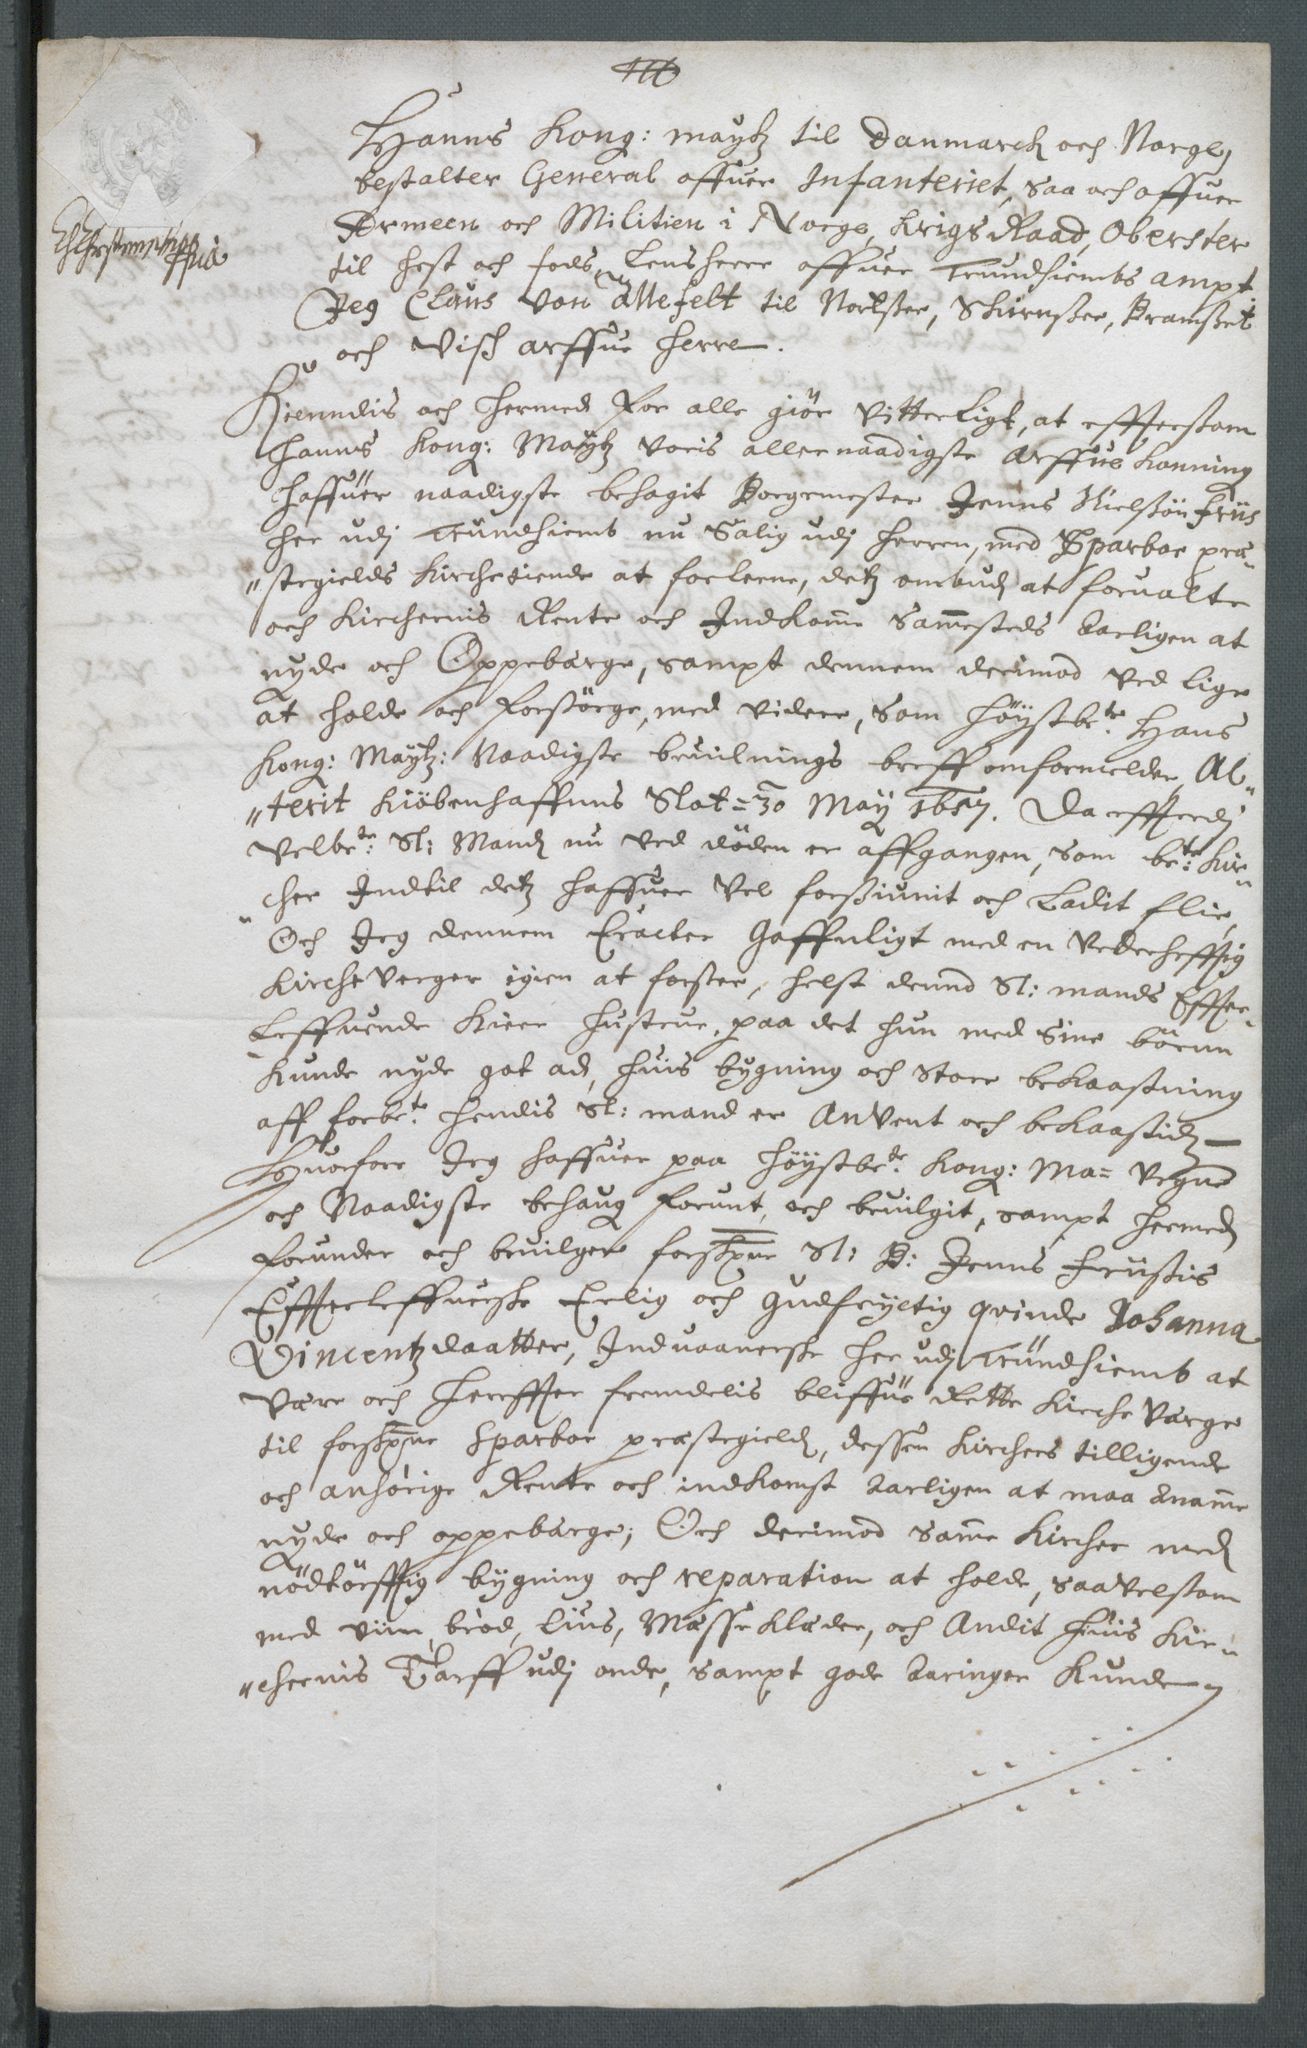 Hanns Kong: maytz til Danmarck och Norge,
bestalter General offuer Infanteriet, saa och offuer
Armeen och Militien i Norge, Krigs Raad, Oberster
til hest och fods, Lensherre offuer Trundhiembs ampt
Jeg Claus von Allefelt til
och Visch arffue herre.
Kiendis och hermed for alle giör vitterligt, at effterssom
hanns Kong: Maytz voris allernaadigste Arffue Konning
haffuer naadigste behagit Borgemester Jenns Nielssön Friis
her udj Trundhiemb nu Salig udj herren, med Sparboe præ-
"stegields Kirchetiende at forleene, detz ombud at forvalte
och Kirchernis Rente och Indkomme Sammesteds aarligen at
nyde och Oppebærge, sampt dennem derimod ved lige
at holde och forssörge, med videre, som höystbete. Hans
Kong: Maytz: Naadigste bevilnings breff omformelder, A
"terit Kiöbenhaffuns Slot = 30 May 1657. Da effterdj
velbete: Sl: Mand nu ved döden er affgangen, som bete: Kir-
"cher Indtil detz haffuer vel forssiunit och Ladit flie,
Och Jeg dennem Eracter Gaffnligt med en Vederhefftig
Kircheverger igien at forssee, helst dennd Sl: mands Effter-
Leffuende Kiere hustrue, paa det hun med Sine börnn
Kunde nyde got ad, huis bygning och Store bekaastning
aff forbete. hendis Sl: mand er Anvent och bekaastid,
Huorfore Jeg haffuer paa höystbete. Kong: Ma= vegne
och Naadigste behaug forunt, och bevilgit, sampt hermed
forunder och bevilger forschrne Sl: B: Jenns Friissis
Effterleffuerske Erlig och Gudfryctig qvinde Johanna
Vincentzdaatter, Indvaanerske her udj Trundhiemb at
være och hereffter fremdelis bliffue Rette Kirche Værge
til forschrne Sparboe præstegield, dessen Kirchers tilligende
och anhörige Rente och indkomst aarligen at maa anamme
nyde och oppebærge; Och derimod Samme Kircher med
nödtörfftig bygning och reparation at holde, saavelssom
med viin, bröd, Lius, Mæsseklæder, och Andit huis Kir-
"chernis Tarff udj onde, sampt gode aaringer kunde